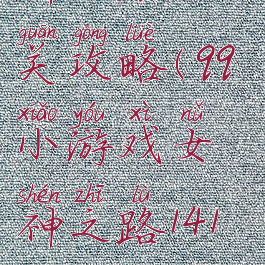 guān gōng lüè
关攻略(99
xiǎo yóu xì nǚ
小游戏女
shén zhī lù
神之路141